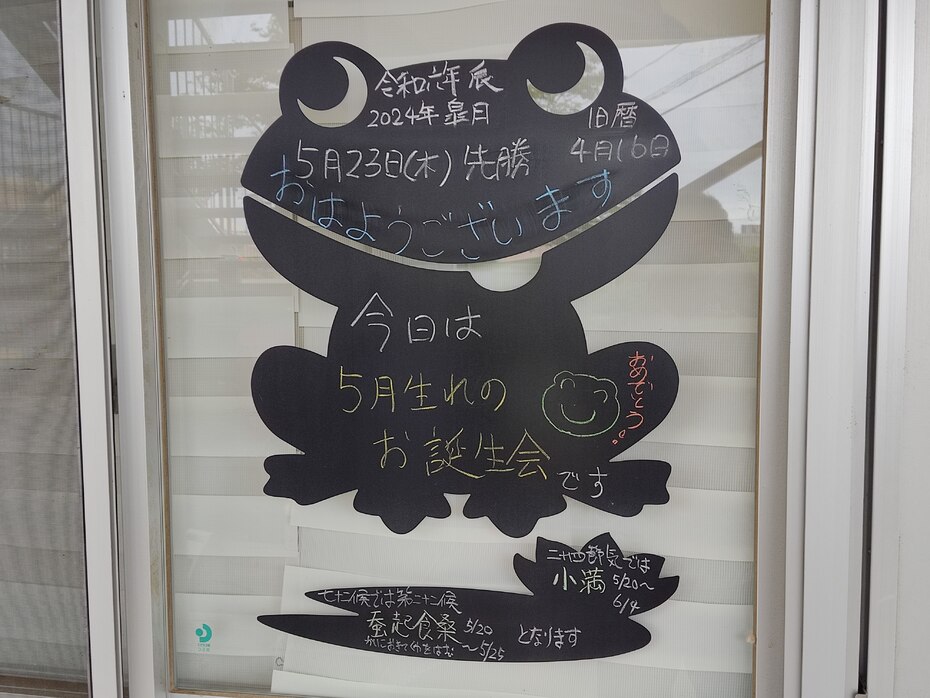 令和六年辰
2024年皐月
旧暦
4月16日
5月23日(木)先勝
おはようございます
今日は
5月生れの
お誕生会です
おめでとう
二十四節気では
小満 5/20〜
6/4
七十二候では第二十二候
蚕起食桑 5/20
かいこおきてくわをはむ 〜5/25
となります